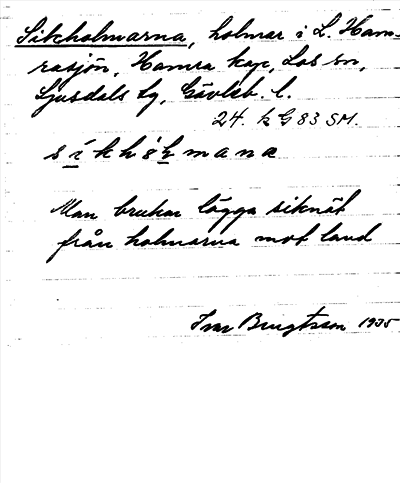 Sikholmarna, holmar i L. Ham-
rasjön, Hamra kap, Los sn,
Ljusdals tg, Gävleb. l.
24. k G 83 SM.
síkhòḷmana
Man brukar lägga siknät
från holmarna mot land
Ivar Bengtsson 1935